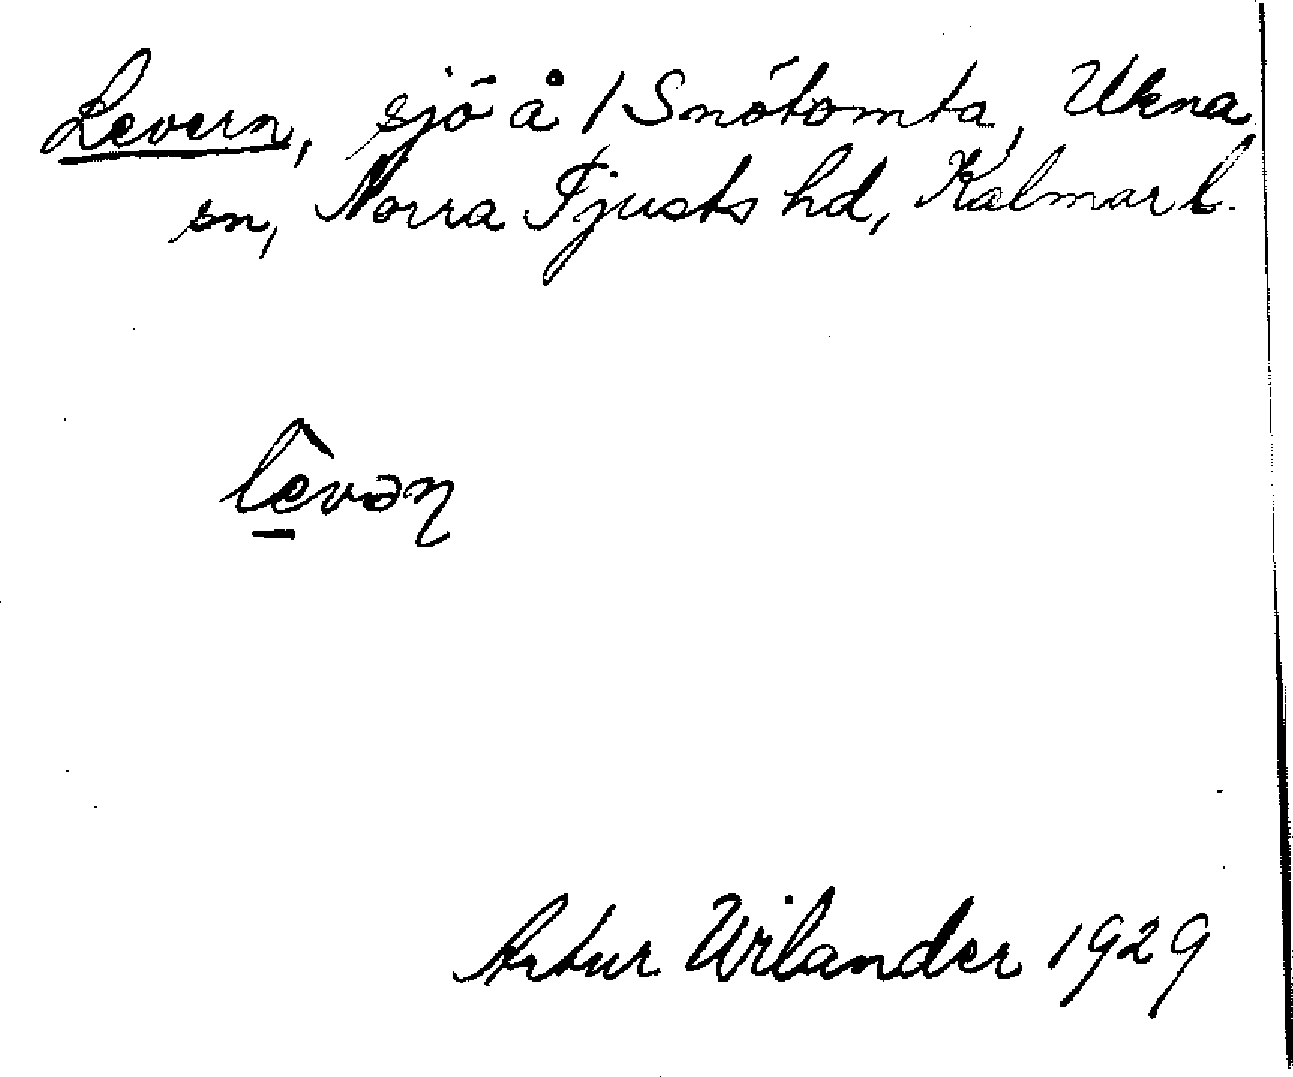 Levern, sjö å 1 Snötomta, Ukna
sn, Norra Tjusts hd, Kalmar l.
lêvəɳ
Artur Wilander 1929